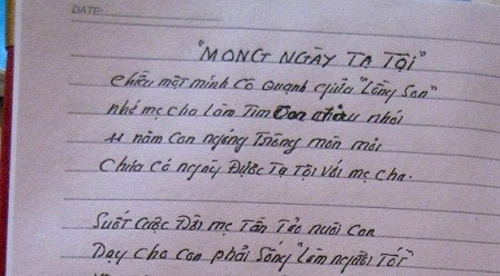 DATE:
"MONG NGÀY TẠ TỘI"
chiều một mình cô quạnh giữa "Lạng Sơn"
nhớ mẹ cha làm Tim Con nhói
11 năm Con ngóng Trông mòn mỏi
Chưa có ngày Được Tạ Tội với mẹ cha.
Suốt Cuộc Đời mẹ Tần Tảo nuôi Con
Dạy cho Con phải Sống "Làm người Tốt"